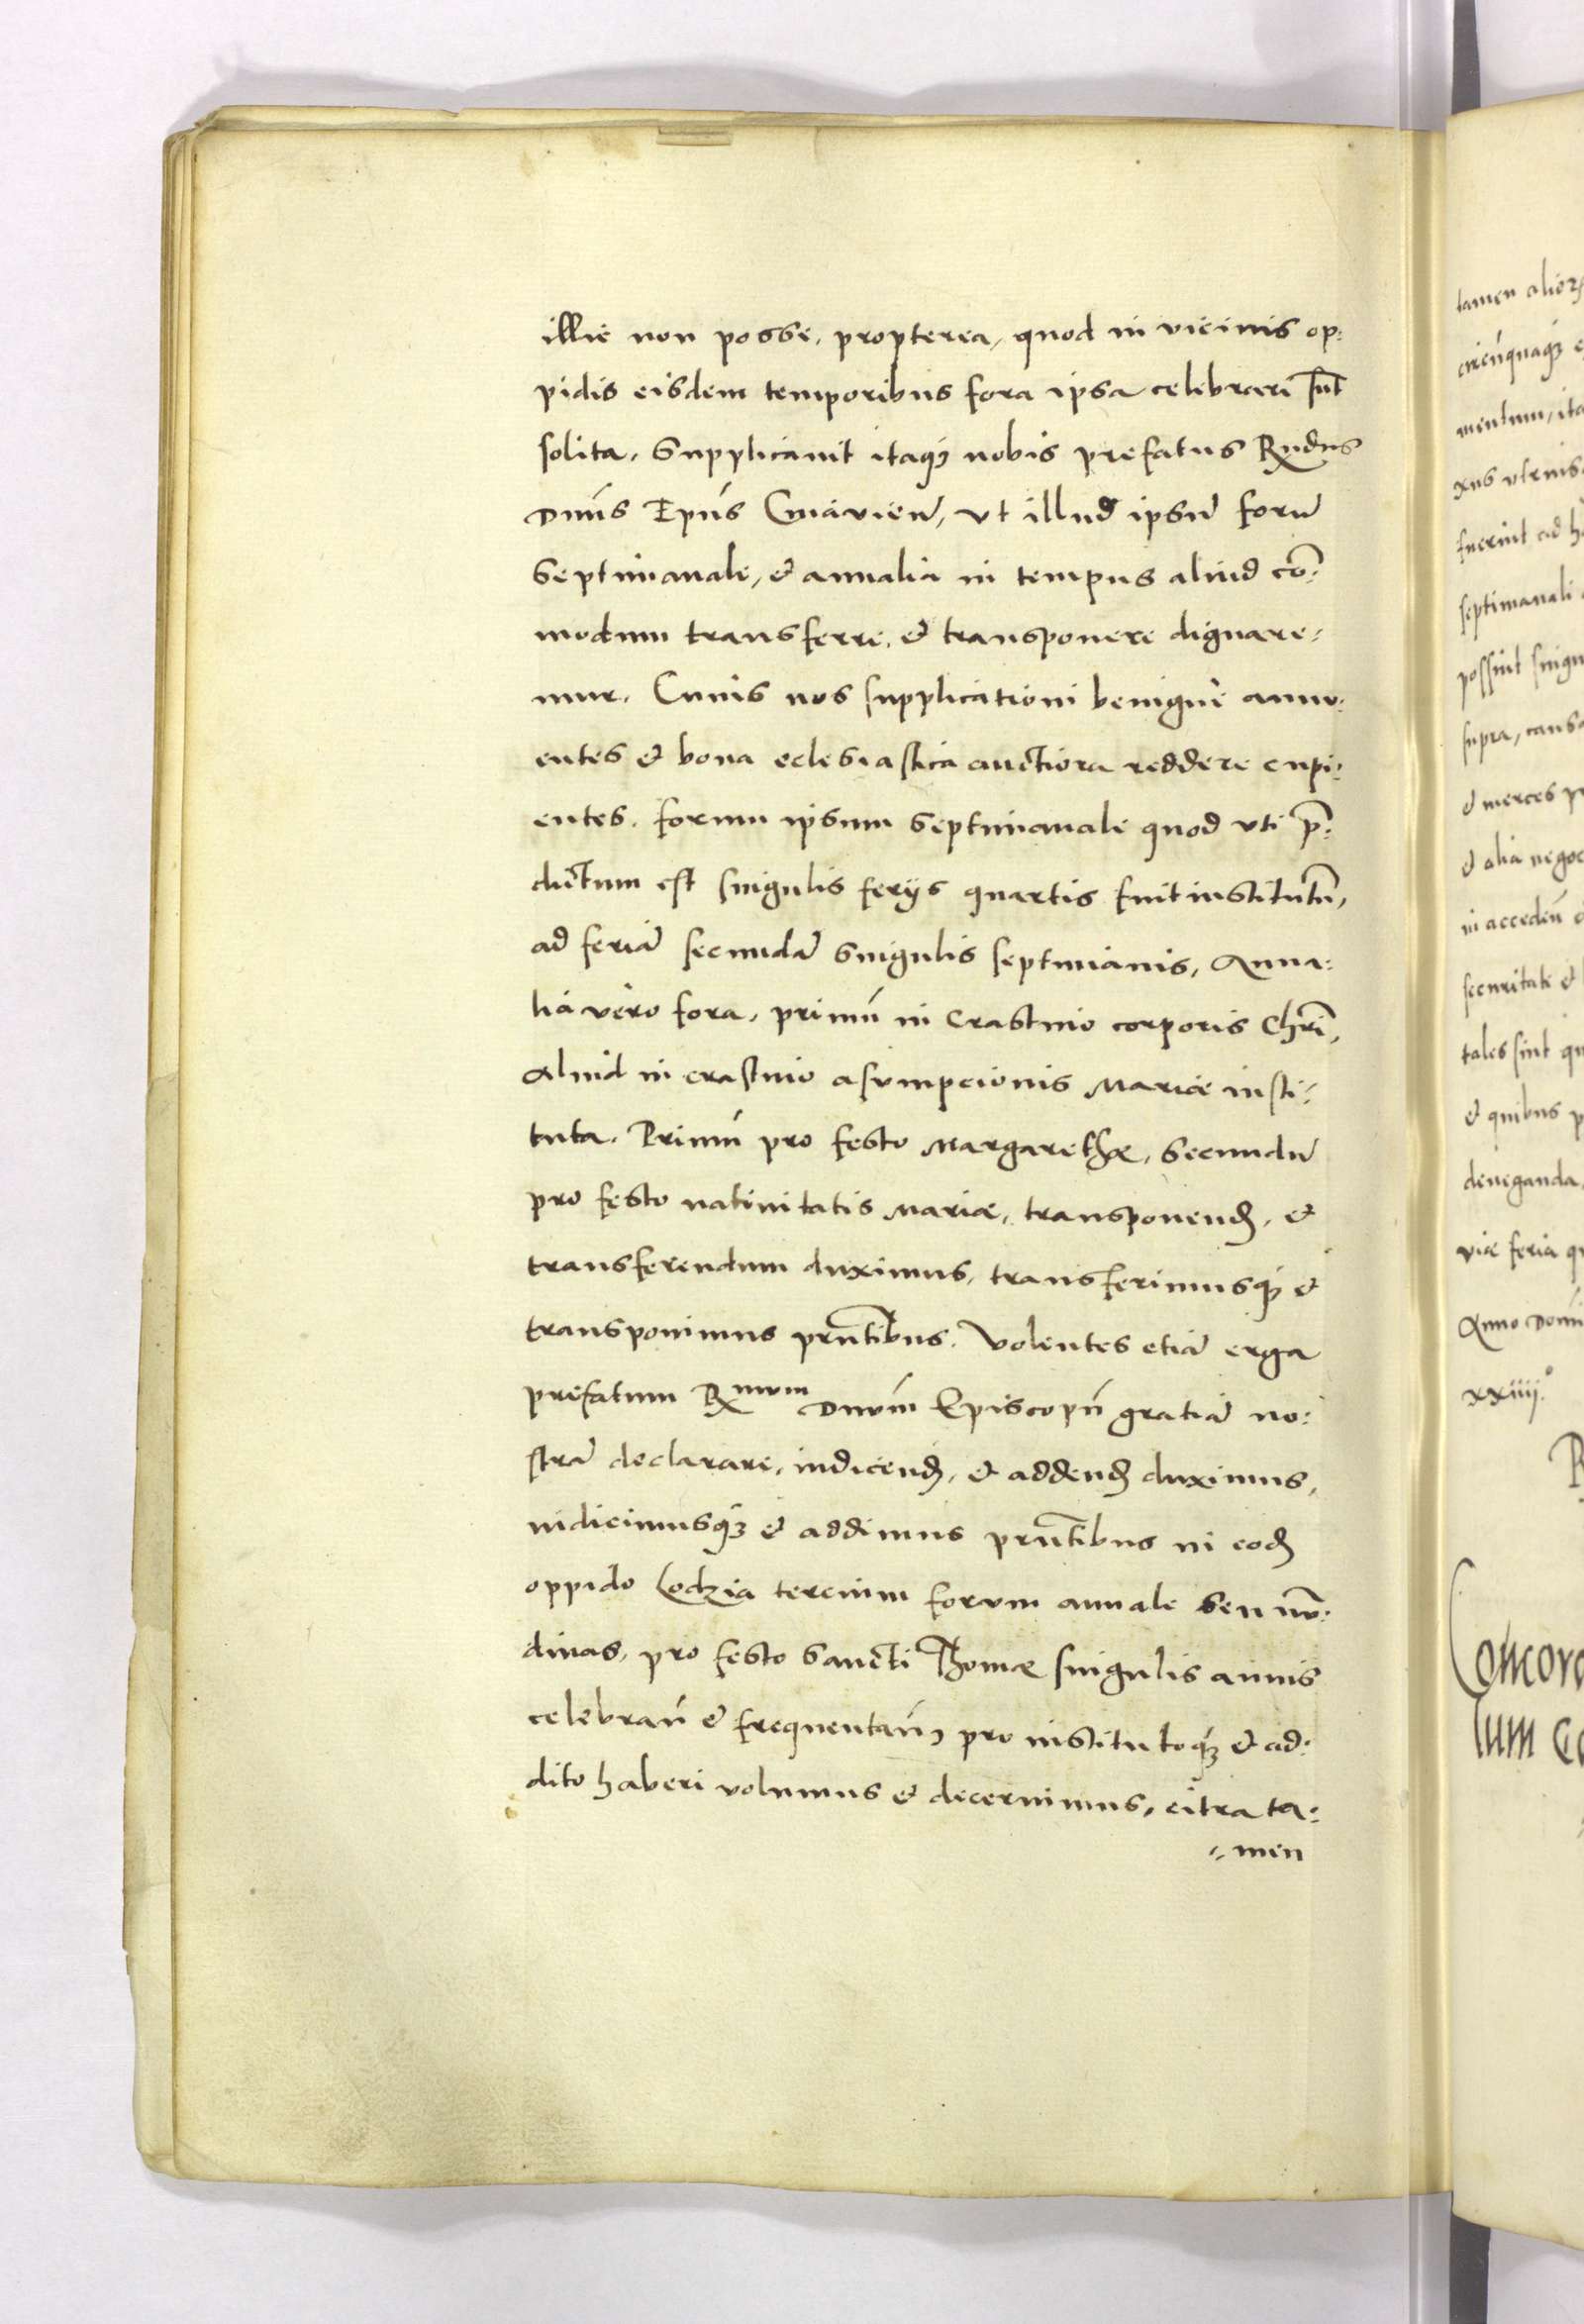 illic non posse, propterea, quod in vicinis op:
pidis eisdem temporibus fora ipsa celebrari sūt
solita, Supplicauit itaqȝ nobis prefatus Rndus
Dnūs Epūs Cuiavien̄, vt illud ipsū forū
Septimanale, et annalia in tempus aliud cō:
modum transferre, et transponere dignare:
mur. Cuius nos supplicationi benigne annu:
entes et bona eclesiastica auctiora reddere cupi:
entes. forum ipsum Septimanale quod vti p̄:
dictum est singulis ferijs quartis fuit institutū,
ad feriā secundā Singulis septimanis, Anna:
lia vero fora, primū in Crastino corporis Chrī,
Aliud in crastino asumpcionis Mariæ insti:
tuta. Primū pro festo Margarethæ, Secundū
pro festo natiuitatis Mariæ, transponend̄, et
transferendum duximus, transferimusqȝ et
transponimus prn̄tibus. Volentes etiā erga
prefatum Rmum Dnūm Episcopū gratiā no:
strā declarare, indicend̄, et addend̄ duximus,
indicimusqȝ et addimus prn̄tibus in eod̄
oppido Lodzia tercium forum annale seu nū:
dinas, pro festo Sancti Thomæ singulis annis
celebran̄ et frequentan̄, pro institutoqȝ et ad:
dito haberi volumus et decernimus, citra ta:
:men
tamen alior
circūquaqȝ
mentum, ita
fuerint ad
septimanali
possint singu
supra, causa
et merces
et alia negoc
in acceden̄
securitate et
tales sint
et quibus
deneganda,
feria
Anno Domi
xxiiij.
Concor
tum